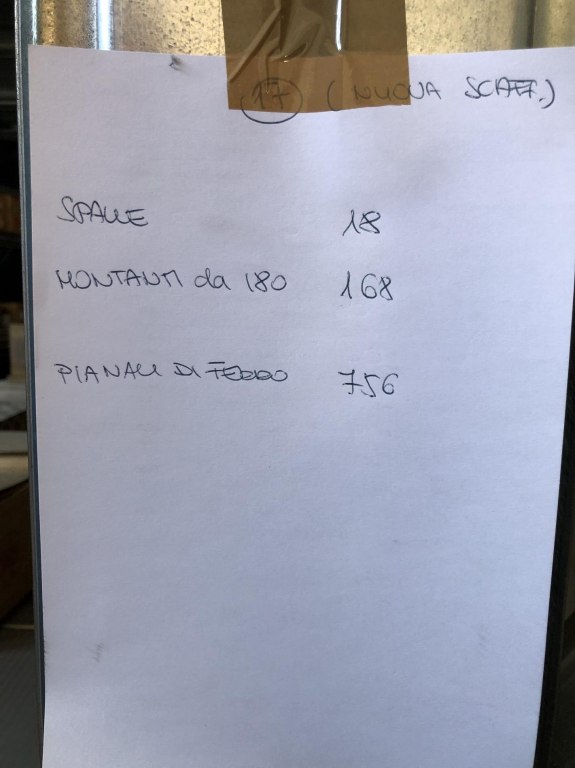 17 (NUOVA SCAFF.)
SPALLE 18
MONTANTI da 180 168
PIANALI DI FERRO 756